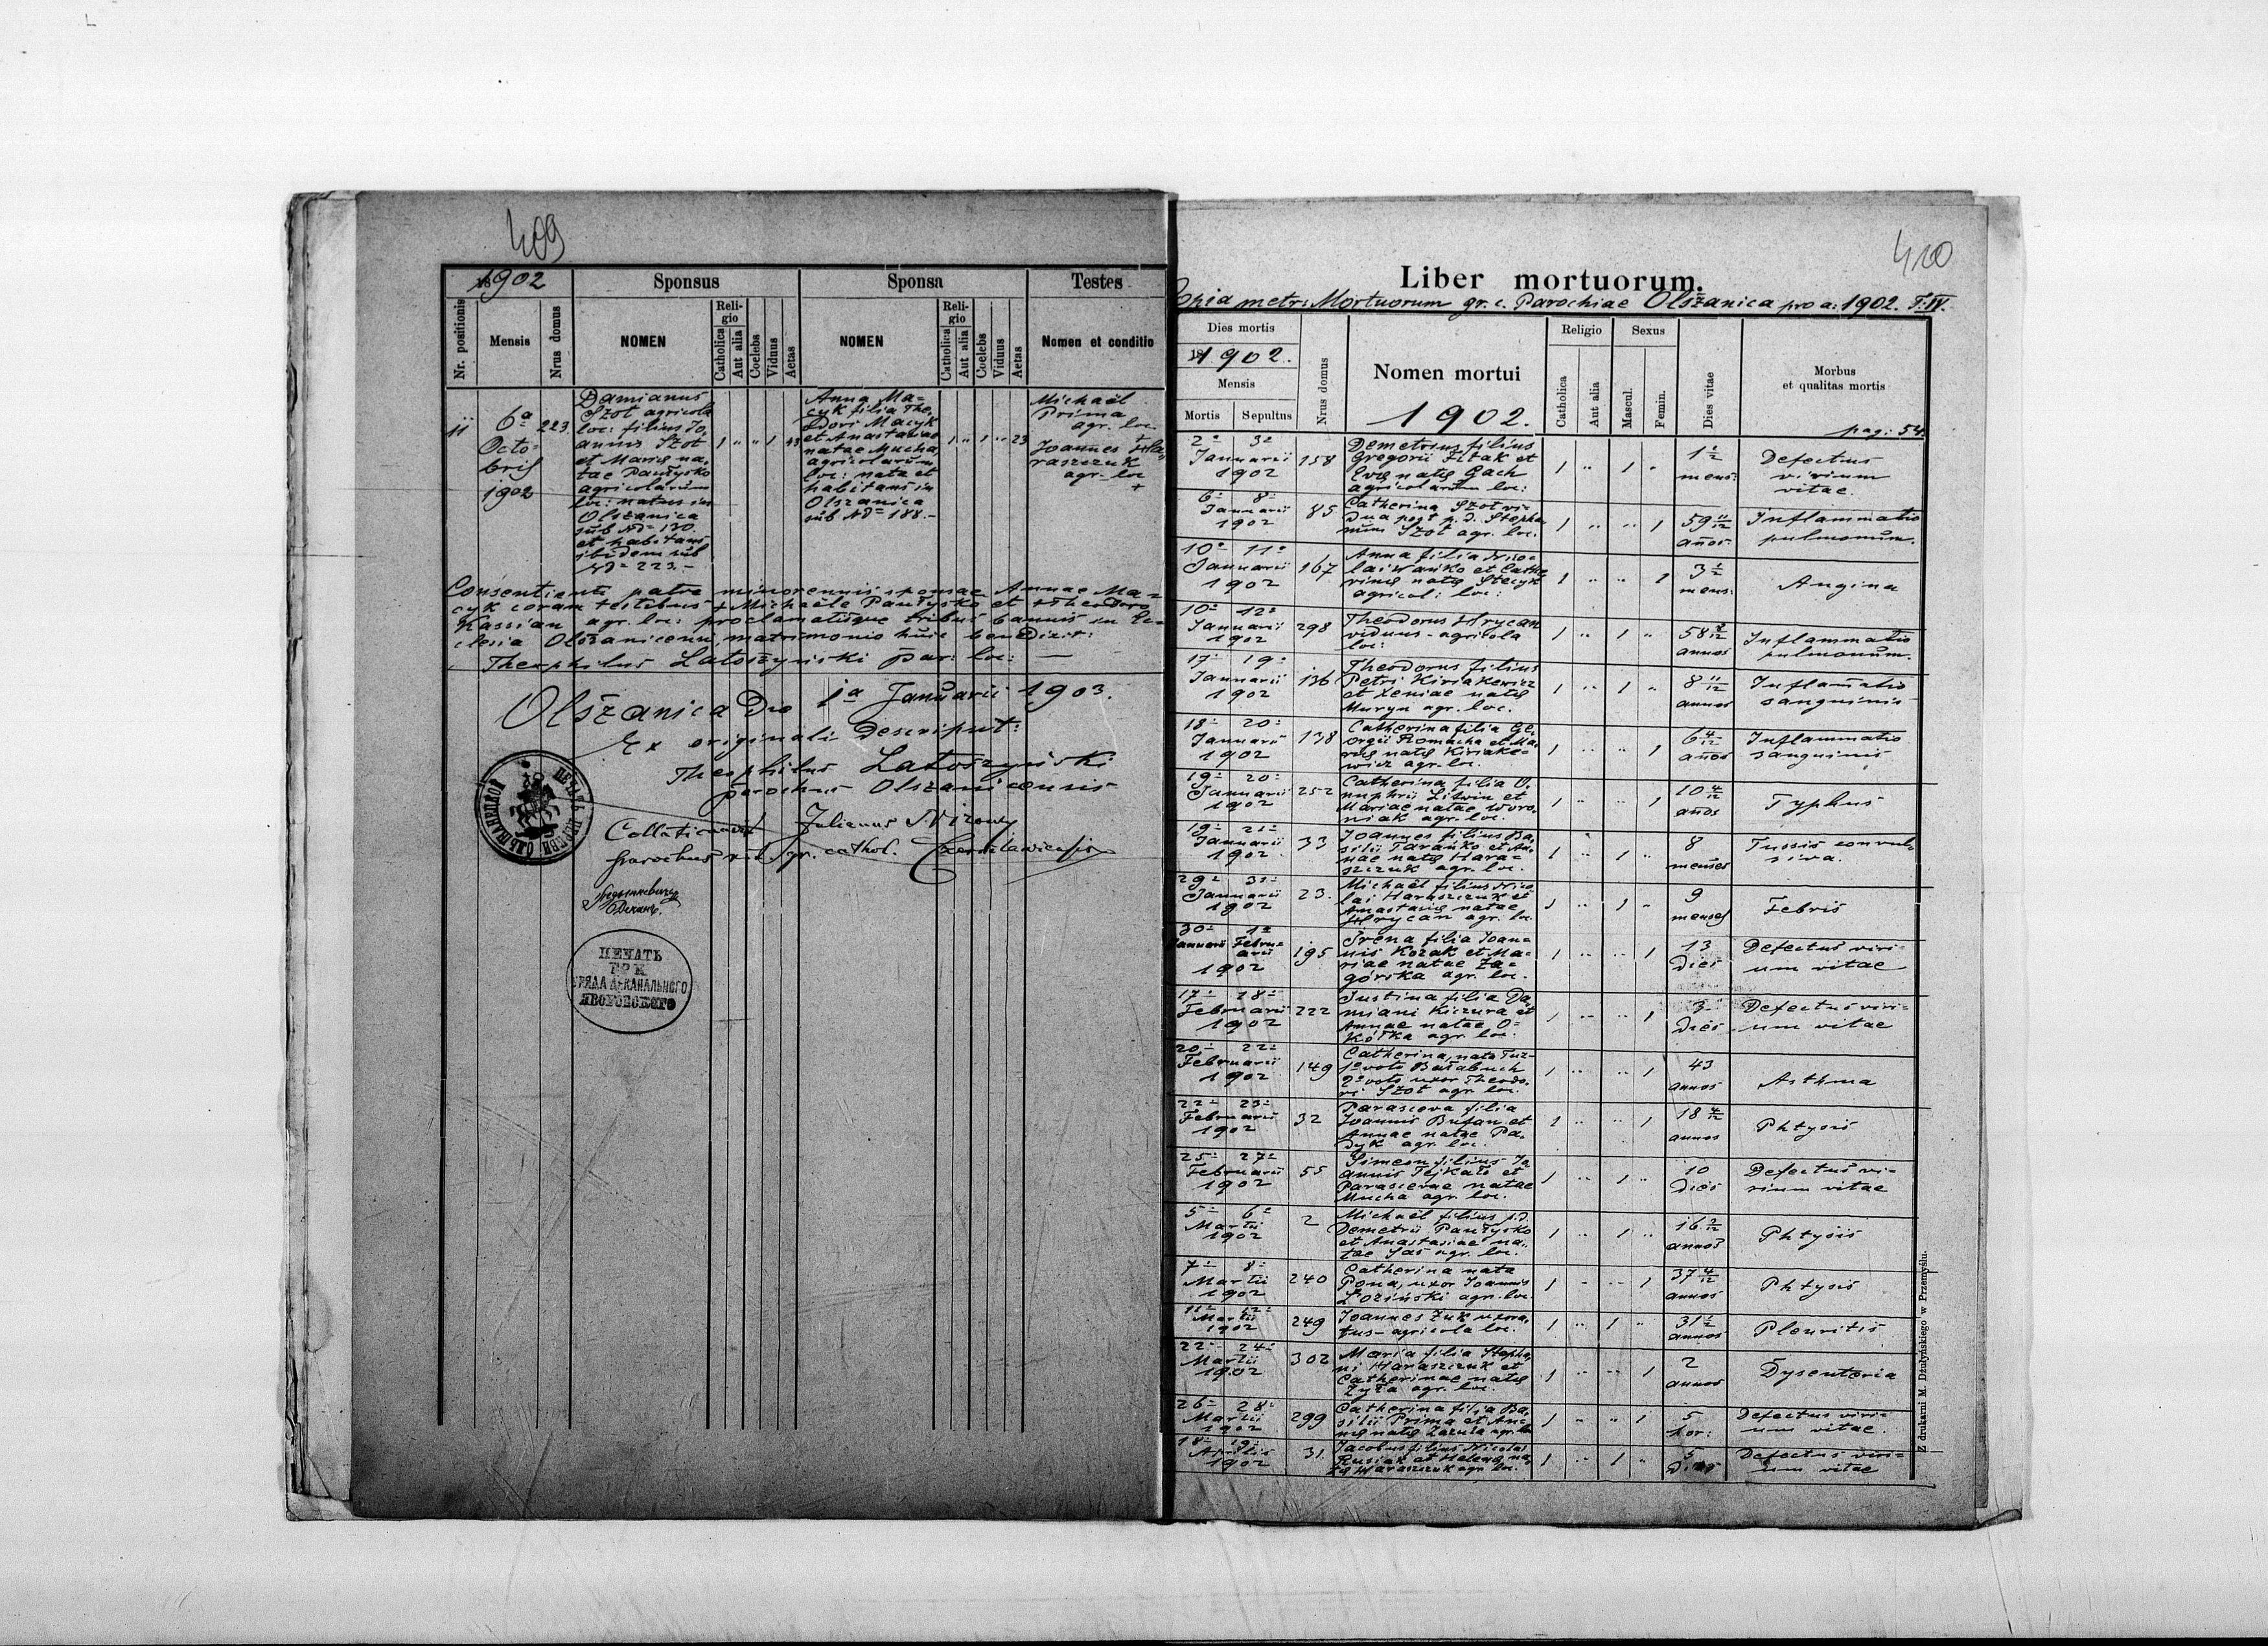 409
1902
Sponsus
Sponsa
Testes
Nr. positionis
Mensis
Nrus domus
NOMEN
Religio
Catholica
Aut alia
Coelebs
Viduus
Aetas
NOMEN
Religio
Catholica
Aut alia
Coelebs
Viduus
Aetas
Nomen et conditio
11
6a
Octo=
bris
1902
223
Damianus
Szot agricola
loc: filius Jo,
annis Szot
et Mariae na,
tae Pautysko
agricolarum
loc: natus in
Olszanica
sub No= 130.
et habitans
ibidem sub
No= 223.-
1 " " 1 43
Anna Ma=
cyk filia The,
odori Macyk
et Anastasiae
natae Mucha,
agricolarum
loc: nata et
habitans in
Olszanica
sub No= 188.-
1 " 1 " 23
Michaël
Prima
agr. loc.
Joannes Ha,
raszczuk
agr. loc
+
Consentiente patre minorennis sponsae Annae Ma=
cyk coram testibus + Michaële Pautysko et + Theodoro
Kassian agr. loc: proclamatisque tribus bannis in Ec=
clesia Olszanicensi, matrimonio huic benedixit:
Theophilus Latoszyński par: loc: —
Olszanica Die 1a Januarii 1903.
Ex originali descripsit:
Theophilus Latoszyński
parochus Olszanicensis
Julianus Nizowy
parochus rit. gr. cathol.
ПЕЧАТЬ ЦЕРКВИ ОЛЬШАНЕЦКОЙ
Деканъ.
ПЕЧАТЬ
ГРК
УРЯДА ДЕКАНАЛЬНОГО
ЯВОРОВСКОГО
410
Liber mortuorum.
Copia metr: Mortuorum gr. c. Parochiae Olszanica pro a: 1902. T. IV.
Dies mortis
1902.
Mensis
Mortis
Sepultus
Nrus domus
Nomen mortui
1902.
Religio
Catholica
Aut alia
Sexus
Mascul.
Femin.
Dies vitae
Morbus
et qualitas mortis
pag: 54.
2a 3a
Januarii
1902
158
Demetrius filius
Gregorii Żitak et
Evae natae Gach
agricolarum loc:
1 " 1 "
1 1/2
mens:
Defectus
virium
vitae.
6a 8a
Januarii
1902
85
Catherina Szot vi=
dua post p. d. Stepha,
num Szot agr. loc.
1 " " 1
59 11/12
años
Inflammatio
pulmonum.
10a 11a
Januarii
1902
167
Anna filia Nico=
lai Wańko et Cathe,
rinae natae Stecyk
agricol: loc:
1 " " 1
3 1/2
mens:
Angina
10a 12a
Januarii
1902
298
Theodorus Hrycan
viduus - agricola
loc:
1 " 1 "
annos
Inflammatio
pulmonum.
17a 19a
Januarii
1902
136
Theodorus filius
Petri Kiriakewicz
et Xeniae natae
Muryn agr. loc.
1 " 1 "
8 11/12
annos
Inflamatio
sanguinis
18a 20a
Januarii
1902
138
Catherina filia Ge,
orgii Romacha et Ma,
riae natae Kiriake=
wicz agr. loc.
1 " " 1
6 4/12
años
Inflammatio
sanguinis
19a 20a
Januarii
1902
252
Catherina filia O,
nuphrii Litwin et
Mariae natae Woro,
niak agr. loc.
1 " " 1
10 4/12
años
Typhus
19a 21a
Januarii
1902
33
Joannes filius Ba,
silii Tarańko et An,
nae natae Hara=
szczuk agr. loc.
1 " 1 "
8
menses
Tussis convul,
siva.
29a 31a
Januarii
1902
23.
Michaël filius Nico
lai Haraszczuk et
Anastasiae natae
Hrycan agr. loc.
1 " 1 "
9
menses
Febris
30a 1a
Januarii Febru=
arii
1902
195
Irena filia Joan=
nis Kozak et Ma=
riae natae Za=
górska agr. loc.
1 " " 1
13
Dies
Defectus viri=
um vitae
17a 18a
Februarii
1902
222
Justina filia Da,
miani Kiczura et
Annae natae O=
agr. loc.
1 " " 1
3
Dies
Defectus viri=
um vitae
20a 22a
Februarii
1902
149
Catherina, nata Tuz-
1o voto Barabuch
2o voto uxor Theodo,
ri Szot agr. loc.
1 " " 1
43
annos
Asthma
22a 23a
Februarii
1902
32
Parasceva filia
Joannis Bufan et
Annae natae Pa,
dyk agr. loc.
1 " " 1
18 4/12
annos
Phtysis
25a 27a
Februarii
1902
55
Simeon filius Jo
annis Fejkało et
Parascevae natae
Mucha agr. loc.
1 " 1 "
10
Dies
Defectus vi=
rium vitae
5a 6a
Martii
1902
2
Michaël filius p. d.
Demetrii Pautysko
et Anastasiae na,
tae Jas agr. loc.
1 " 1 "
annos
Phtysis
7a 8a
Martii
1902
240
Catherina nata
Pona, uxor Joannis
Łoziński agr. loc
1 " " 1
37 4/12
annos
Phtysis
11a 12a
Martii
1902
249
Joannes Żuk uxora,
tus - agricola loc.
1 " 1 "
31 1/2
annos
Pleuritis
22a 24a
Martii
1902
302
Maria filia Stepha,
ni Haraszczuk et
Catherinae natae
Żyła agr. loc.
1 " " 1
2
annos
Dysenteria
26a 28a
Martii
1902
299
Catherina filia Ba,
silii Prima et An=
nae natae Zazula agr. loc
1 " " 1
5
hor:
Defectus viri=
um vitae.
18a 19a
Aprilis
1902
31.
Jacobus filius Nicolai
Rusiak et Helenae na,
tae Haraszczuk agr. loc.
1 " 1 "
5
Dies
Defectus viri=
um vitae
Z drukarni M. Dżułyńskiego w Przemyślu.